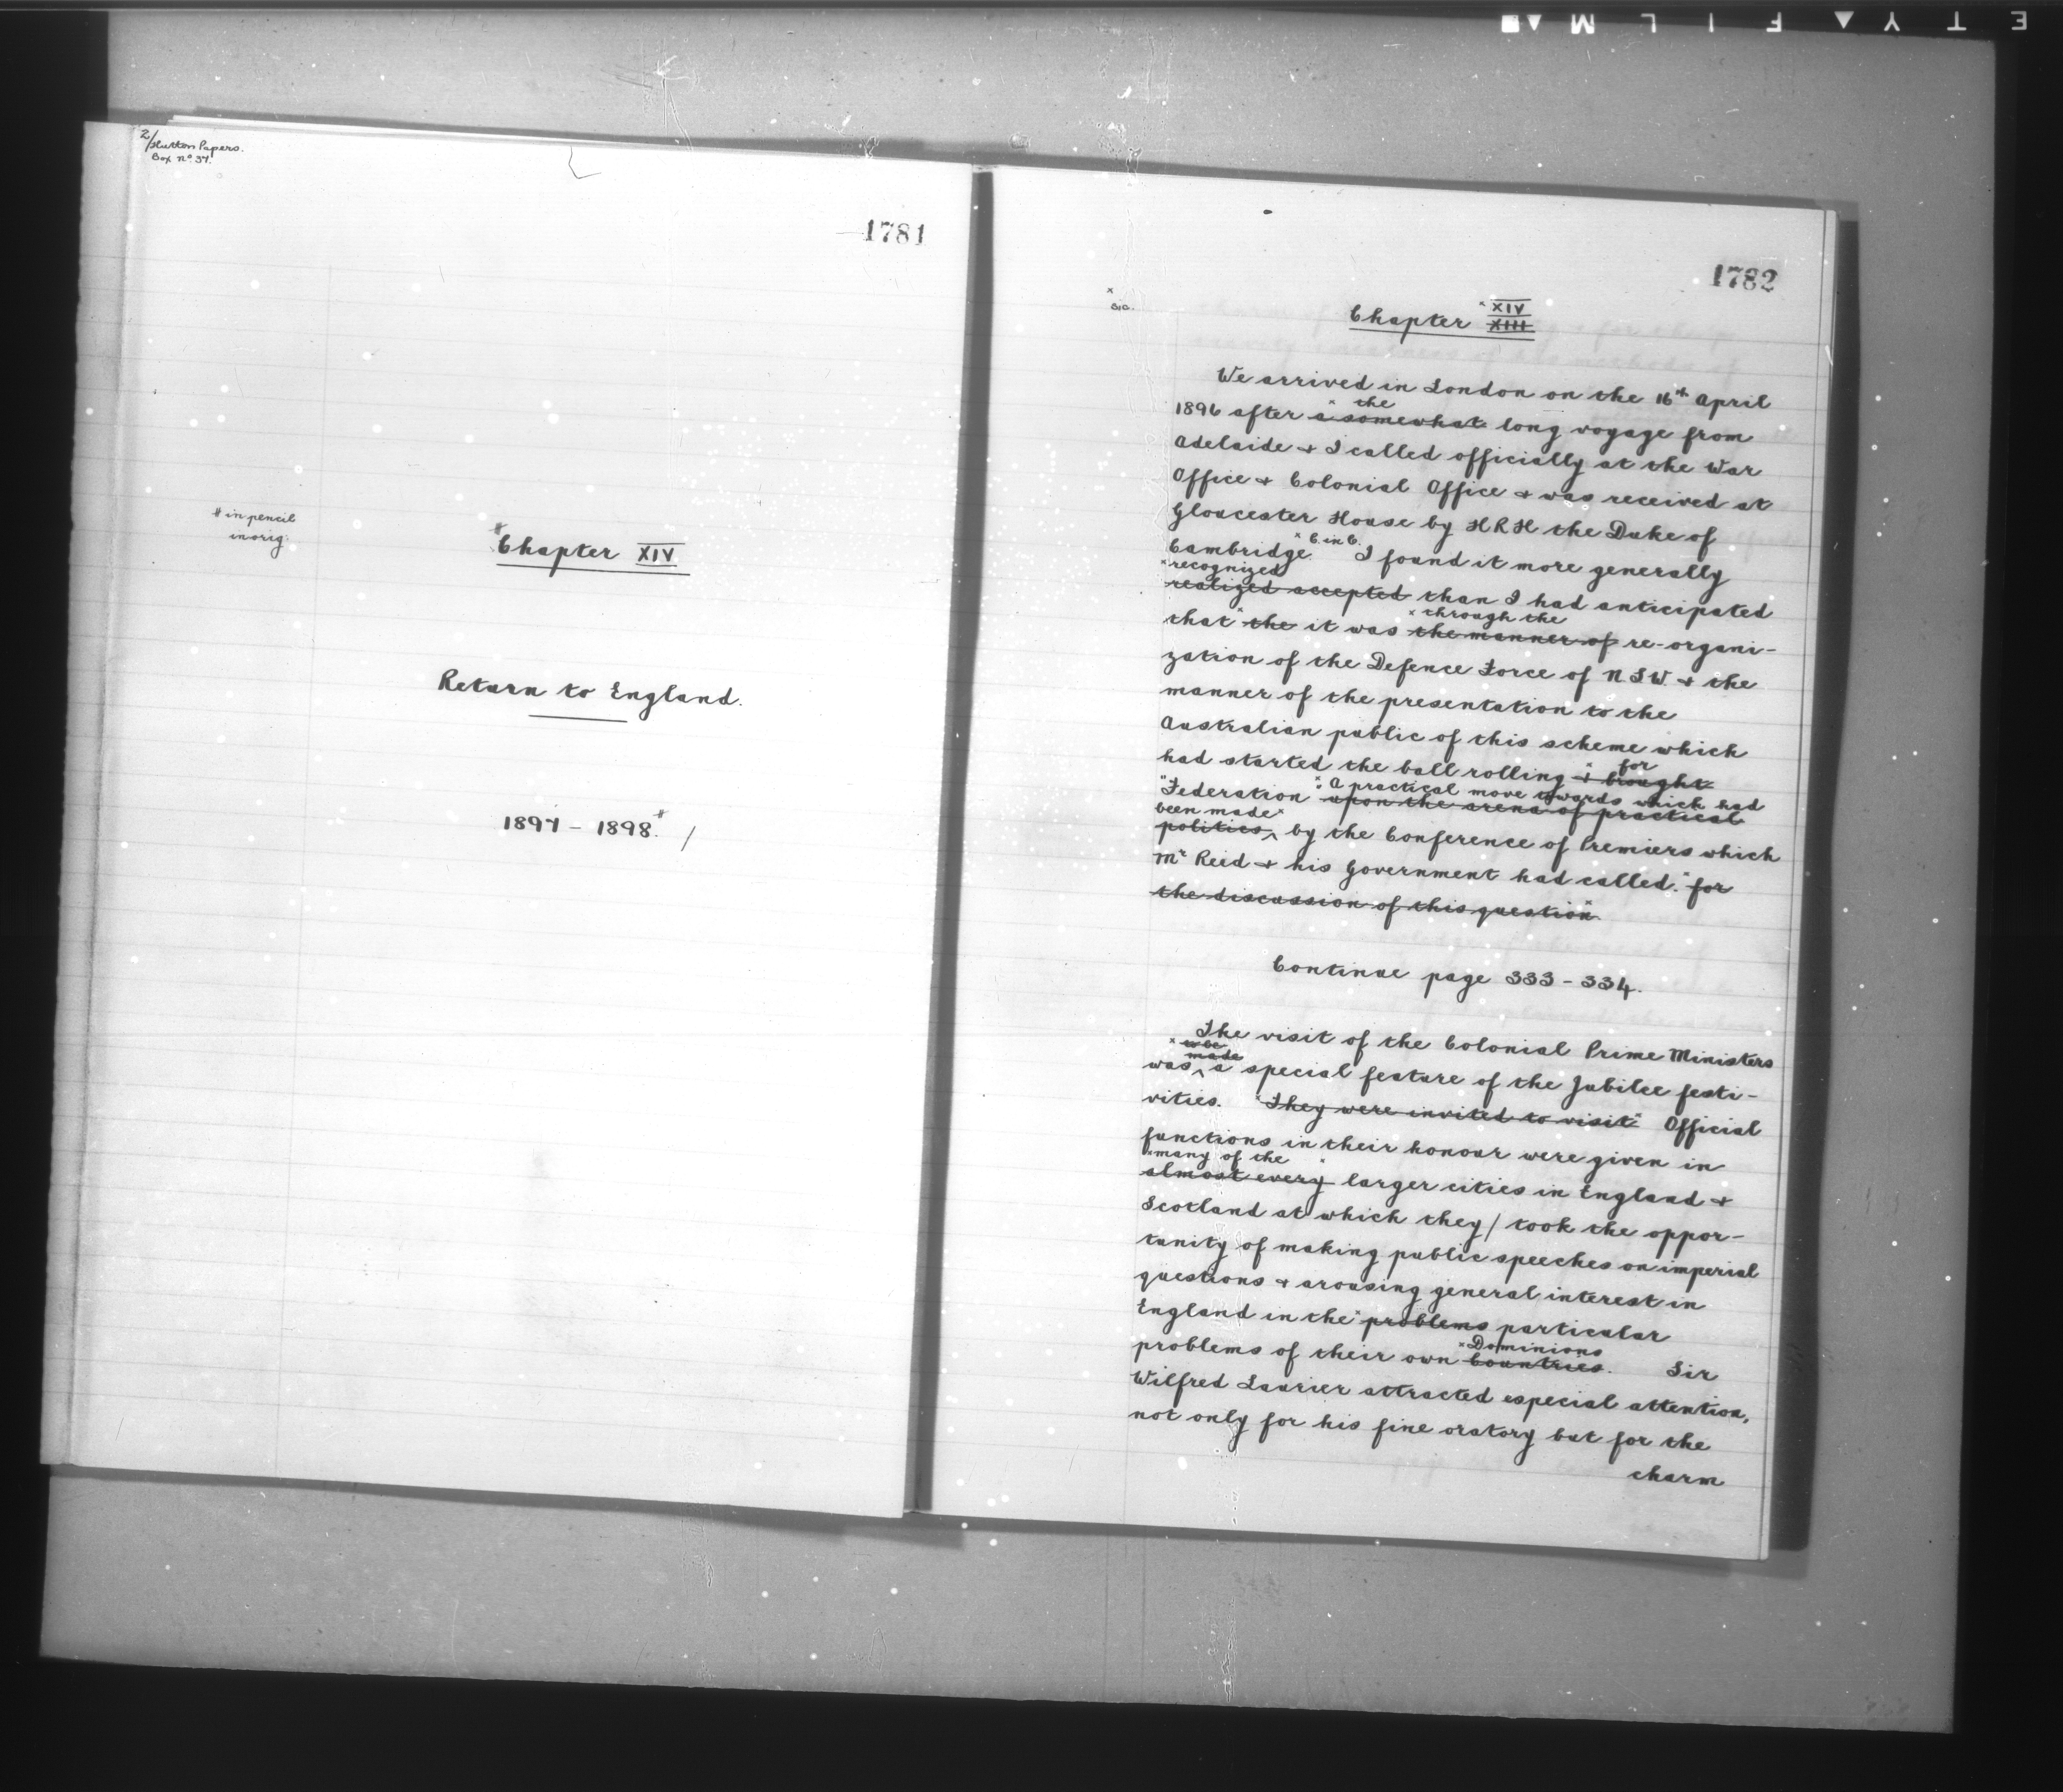 2/Hutton Papers.
Box No. 37.
1781
# in pencil
in orig:
# Chapter XIV
Return to England.
1897 - 1898. # /
1782
x
sic.
x XIV
Chapter XIII
We arrived in London on the 16th April
x the
1896 after a somewhat long voyage from
Adelaide & I called officially at the War
Office & Colonial Office & was received at
Gloucester House by HRH the Duke of
x C. in C.
Cambridge. I found it more generally
x recognized
realized accepted than I had anticipated
x through the
that x the it was the manner of re-organi-
zation of the Defence Force of N.S.W. & the
manner of the presentation to the
Australian public of this scheme which
had started the ball rolling & brought
x for
"Federation x: A practical move towards which had
upon the arena of practical
been made x
politics, by the Conference of Premiers which
Mr Reid & his Government had called. x for
the discussion of this question x
Continue page 333 - 334.
The visit of the Colonial Prime Ministers
made
was a special feature of the Jubilee festi-
vities. x They were invited to visit x Official
functions in their honour were given in
x many of the
almost every x larger cities in England &
Scotland at which they / took the oppor-
tunity of making public speeches on imperial
questions & arousing general interest in
England in the x problems particular
x Dominions
problems of their own Countries. Sir
Wilfred Laurier attracted especial attention,
not only for his fine oratory but for the
charm
E T Y F I L M